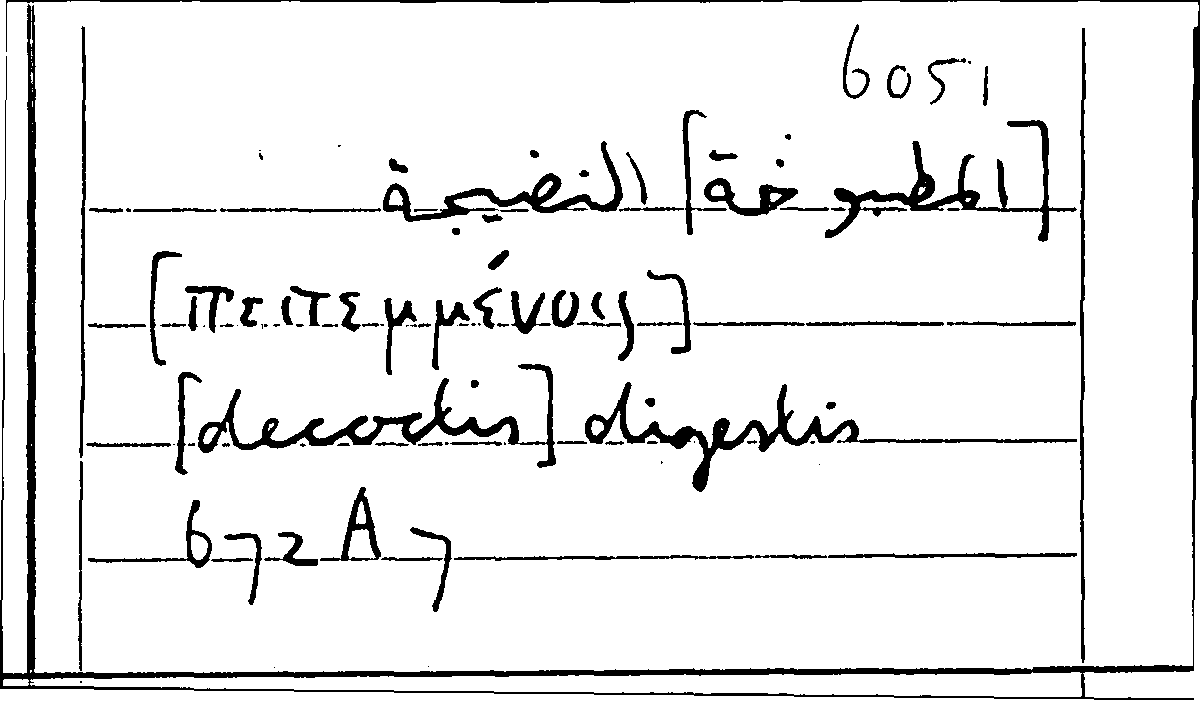 6051
[المطبوخة] النضيجة
[πεπεμμένοις]
[decoctis] digestis
672A7